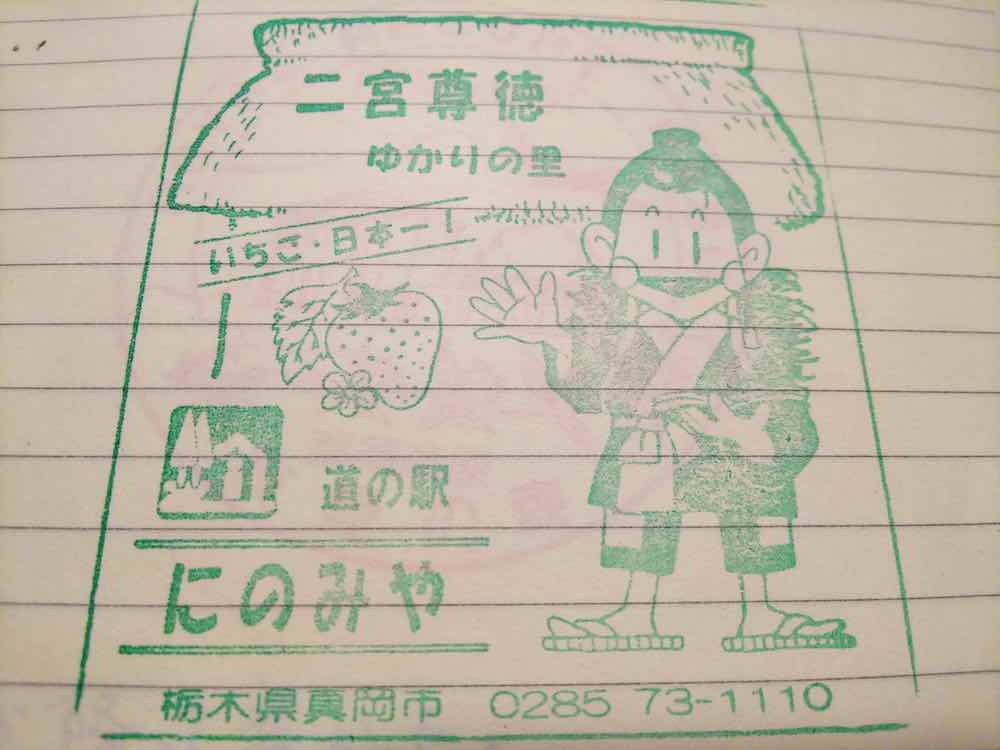 二宮尊徳
ゆかりの里
いちご・日本一!
道の駅
にのみや
栃木県真岡市 0285 73-1110